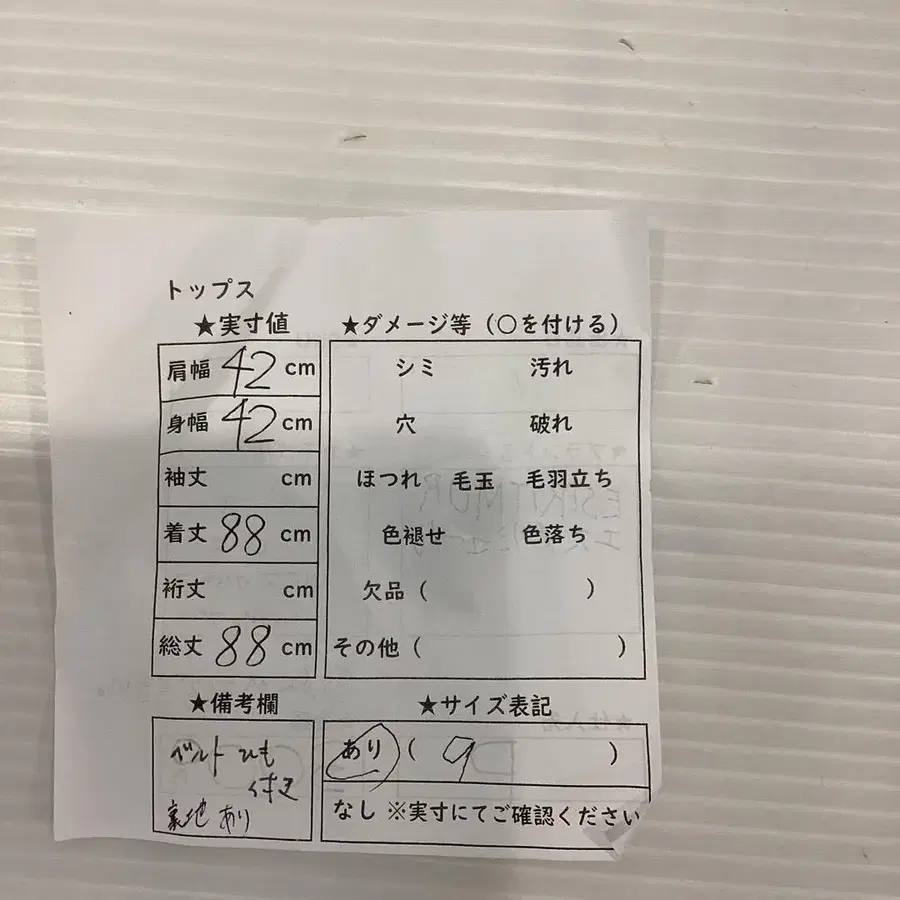 トップス
★実寸値
肩幅 42 cm
身幅 42 cm
袖丈 cm
着丈 88 cm
裄丈 cm
総丈 88 cm
★ダメージ等（○を付ける）
シミ 汚れ
穴 破れ
ほつれ 毛玉 毛羽立ち
色褪せ 色落ち
欠品（ ）
その他（ ）
★備考欄
ベルトひも
付き
裏地あり
★サイズ表記
あり（ 9 ）
なし ※実寸にてご確認ください